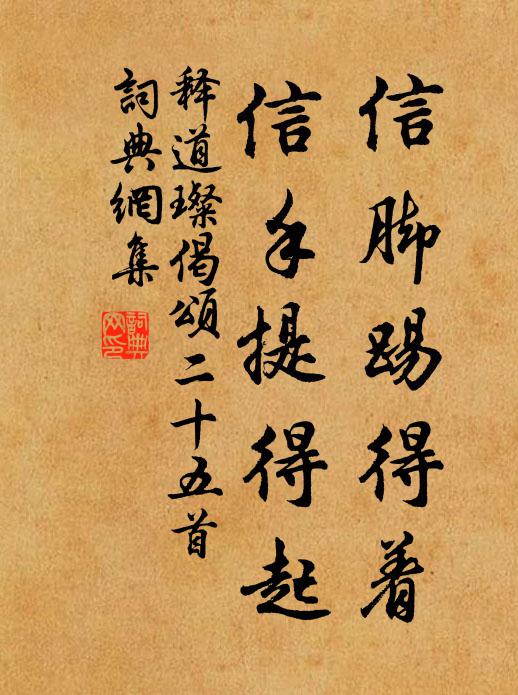 信脚踢得着
信手提得起
释道璨偈頌二十五首
詞典網集
詞典網印